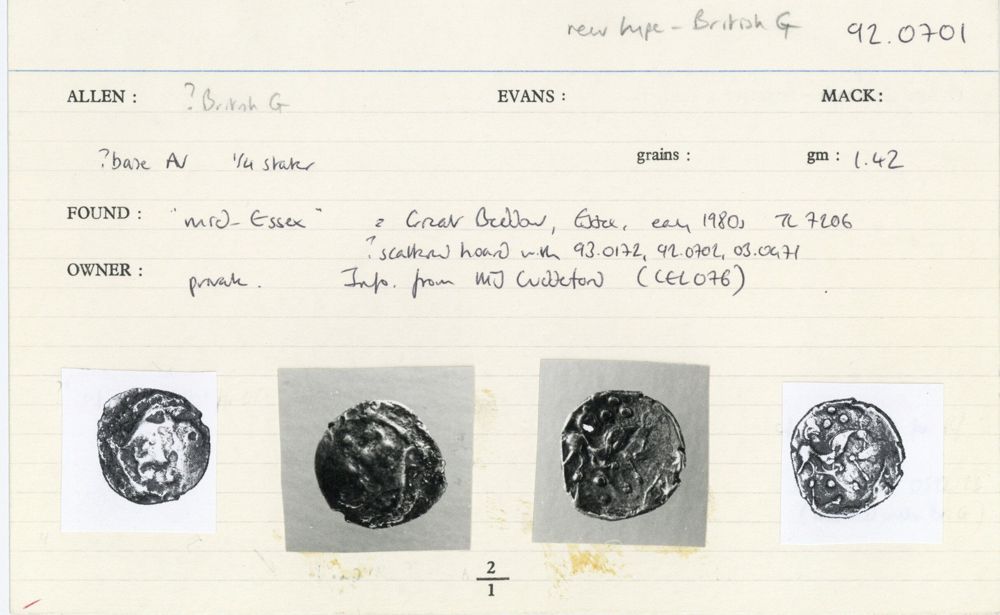 new type - British G 92.0701
ALLEN : ? British G EVANS : MACK:
? base AV 1/4 stater grains : gm : 1.42
FOUND : "mid-Essex" = Great Baddow, Essex, early 1980s TL 7206
? scattered hoard with 93.0172, 92.0702, 03.0971
OWNER : private. Info. from MJ Cuddeford (CEL076)
2
1